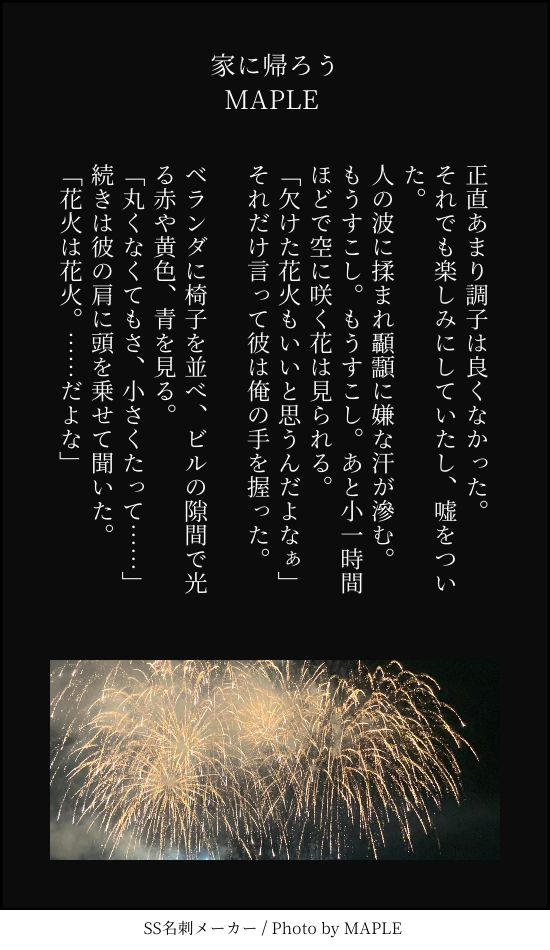 家に帰ろう
MAPLE
正直あまり調子は良くなかった。
それでも楽しみにしていたし、嘘をつい
た。
人の波に揉まれ顳顬に嫌な汗が滲む。
もうすこし。もうすこし。あと小一時間
ほどで空に咲く花は見られる。
「欠けた花火もいいと思うんだよなぁ」
それだけ言って彼は俺の手を握った。
ベランダに椅子を並べ、ビルの隙間で光
る赤や黄色、青を見る。
「丸くなくてもさ、小さくたって……」
続きは彼の肩に頭を乗せて聞いた。
「花火は花火。……だよな」
SS名刺メーカー / Photo by MAPLE